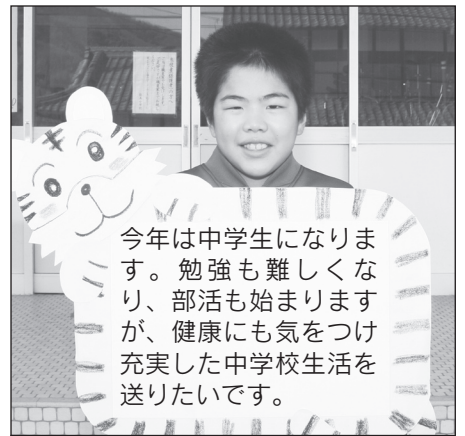 今年は中学生になりま
す。勉強も難しくな
り、部活も始まります
が、健康にも気をつけ
充実した中学校生活を
送りたいです。